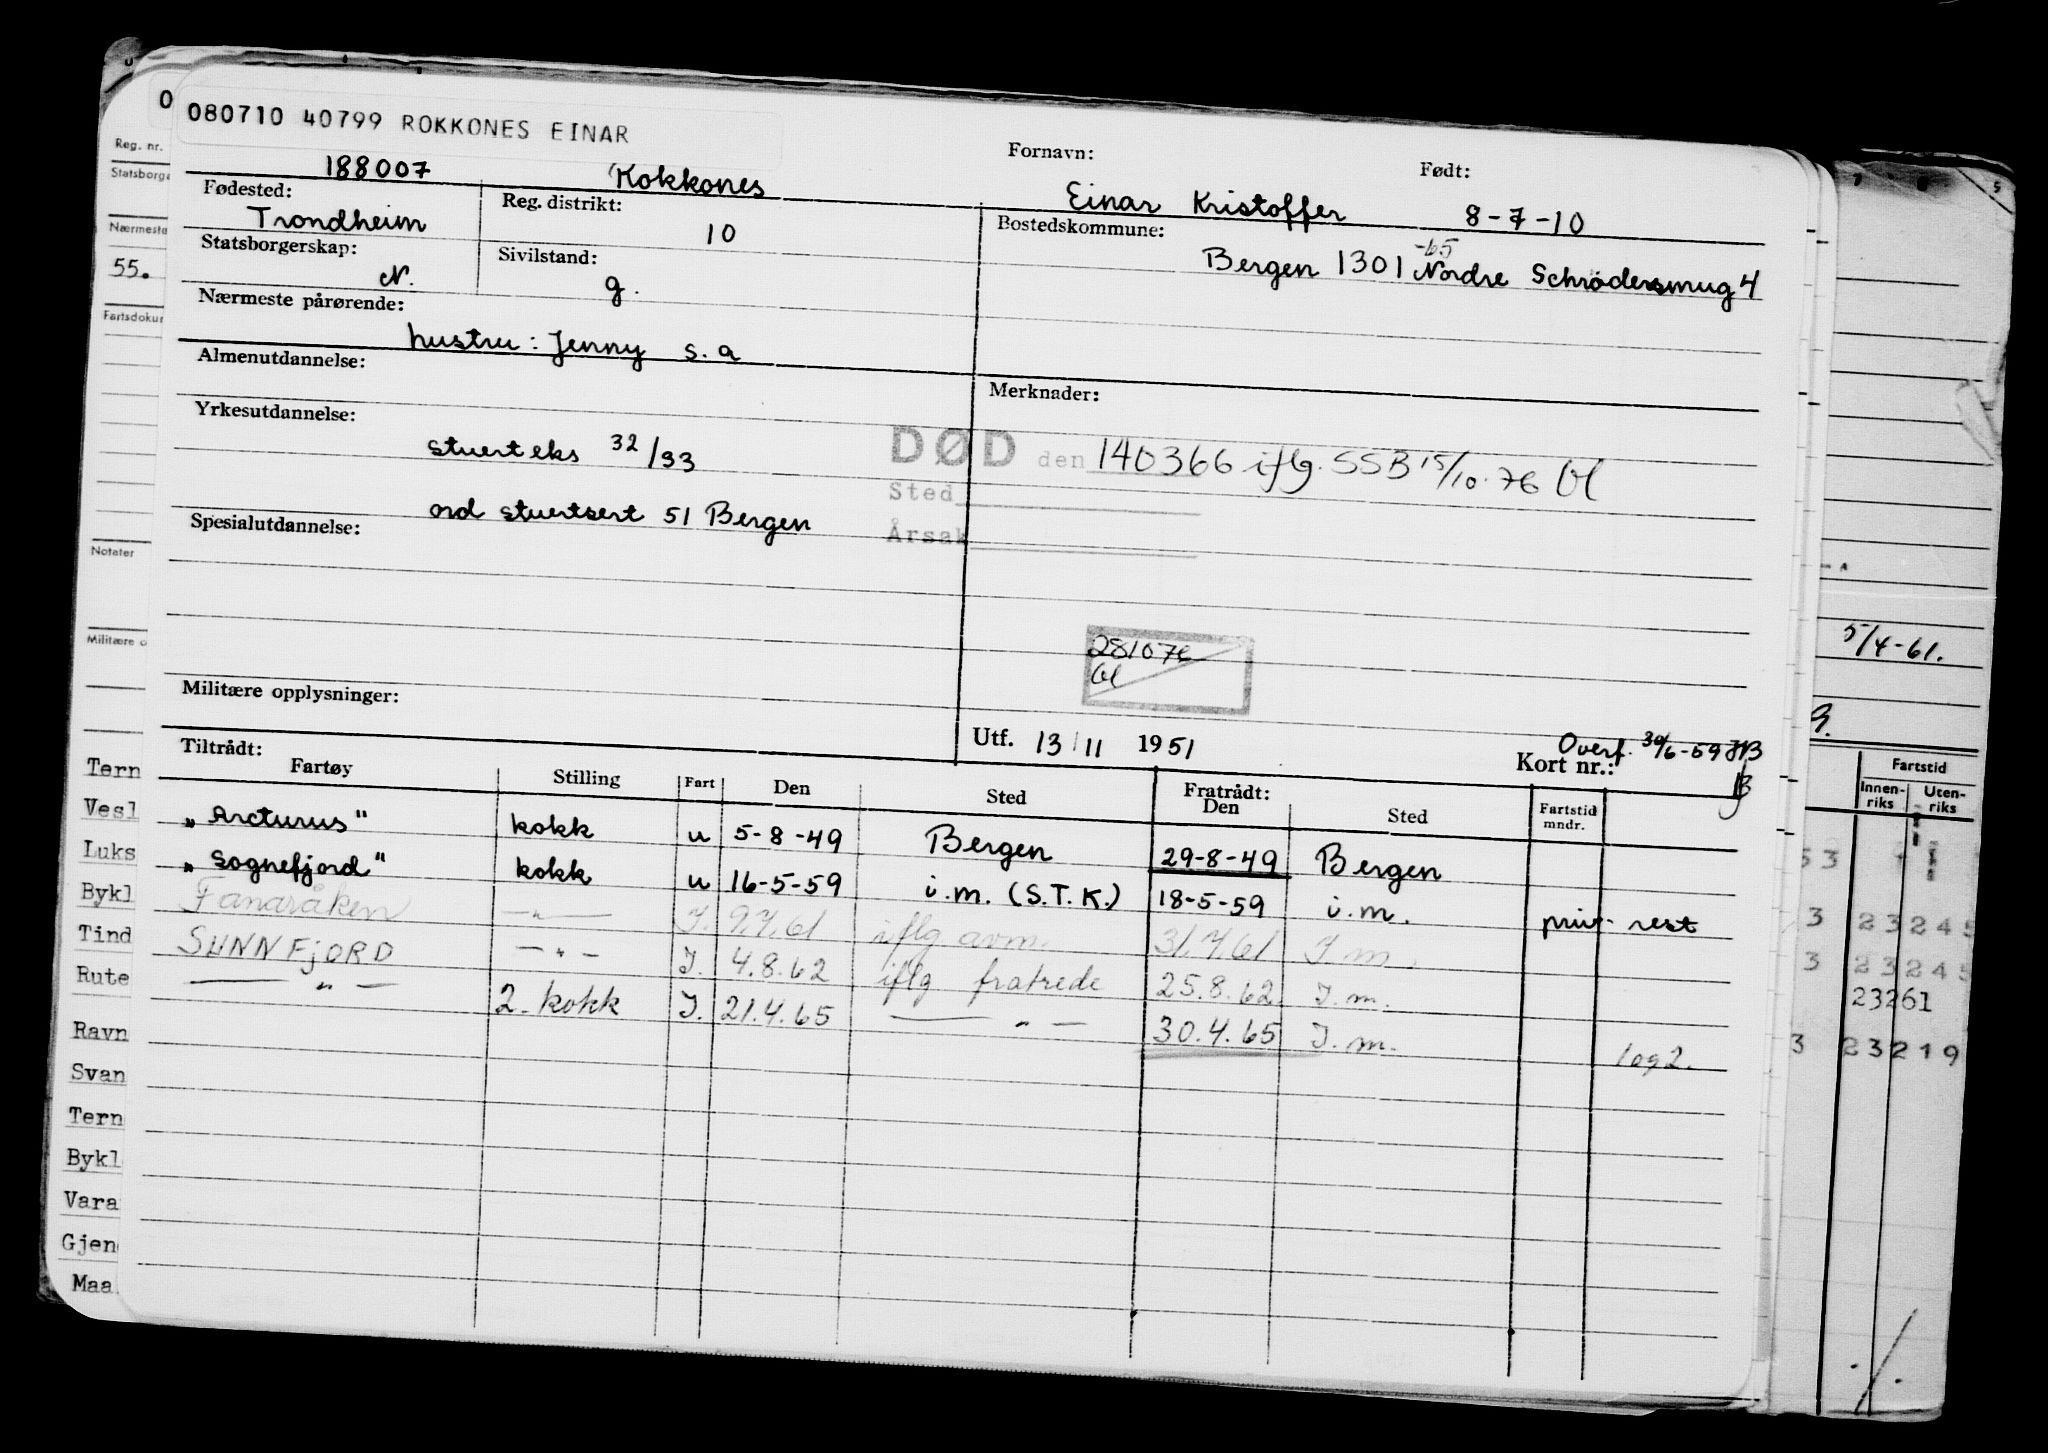 080710 40799 ROKKONES EINAR
188007 Rokkones Fornavn: Einar Kristoffer Født: 8-7-10
Fødested: Trondheim Reg. distrikt: 10 Bostedskommune: Bergen 1301 -65 Nordre Schrødersmug 4
Statsborgerskap: N. Sivilstand: g.
Nærmeste pårørende: hustru: Jenny s.a
Almenutdannelse:
Merknader:
Yrkesutdannelse: stuerteks 32/33
DØD den 140366 iflg. SSB 15/10.76
ord stuertsert 51 Bergen
Sted
Årsak
Spesialutdannelse:
281076
Militære opplysninger:
Utf. 13/11 1951 Kort nr.: Overf. 30/6-59
Tiltrådt: Fratrådt:
Fartøy Stilling Fart Den Sted Den Sted Fartstid mndr.
"Arcturus" kokk u 5-8-49 Bergen 29-8-49 Bergen
"Sognefjord" kokk u 16-5-59 i.m. (S.T.K.) 18-5-59 i.m. priv. rest
Fanaråken —"— J. 9.7.61 iflg avm. 31.7.61 J.m.
SUNNFJORD —"— J. 4.8.62 iflg fratrede 25.8.62 J.m.
—"— 2. kokk J. 21.4.65 —"— 30.4.65 J.m. log 2.
Reg. nr.
Statsborge
Nærmeste
55.
Fartsdokur
Notater
Militære o
Tern
Vesl
Luks
Bykl
Tind
Rute
Ravn
Svan
Tern
Bykl
Vara
Gjen
Maa
5/4-61.
Fartstid
Innen-riks Uten-riks
53
3 23 245
3 23 245
23261
3 23 219